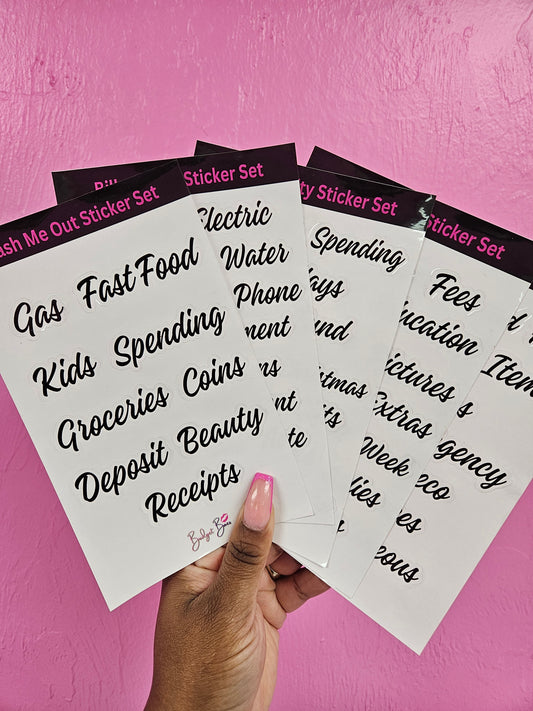 ash Me Out Sticker Set
Gas Fast Food
Kids Spending
Groceries Coins
Deposit Beauty
Receipts
Budget Boss
Bill
Sticker Set
Electric
Water
Phone
ment
ns
nt
te
ty Sticker Set
Spending
ays
und
tmas
ts
Sticker Set
Fees
ucation
ictures
Extras
Week
ies
Item
s
gency
eco
es
eous